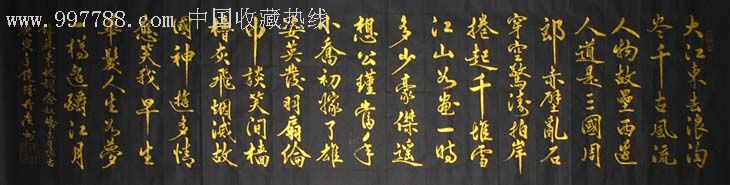 www.997788.com 中国收藏热线
大江東去浪淘
尽千古風流
人物故壘西邊
人道是三國周
郎赤壁亂石
穿空驚濤拍岸
捲起千堆雪
江山如画一時
多少豪傑遥
想公瑾當年
小喬初嫁了雄
姿英發羽扇綸
巾談笑間檣
櫓灰飛烟滅故
國神遊多情
應笑我早生
華髮人生如夢
一樽還酹江月
蘇東坡詞念奴嬌赤壁懷古